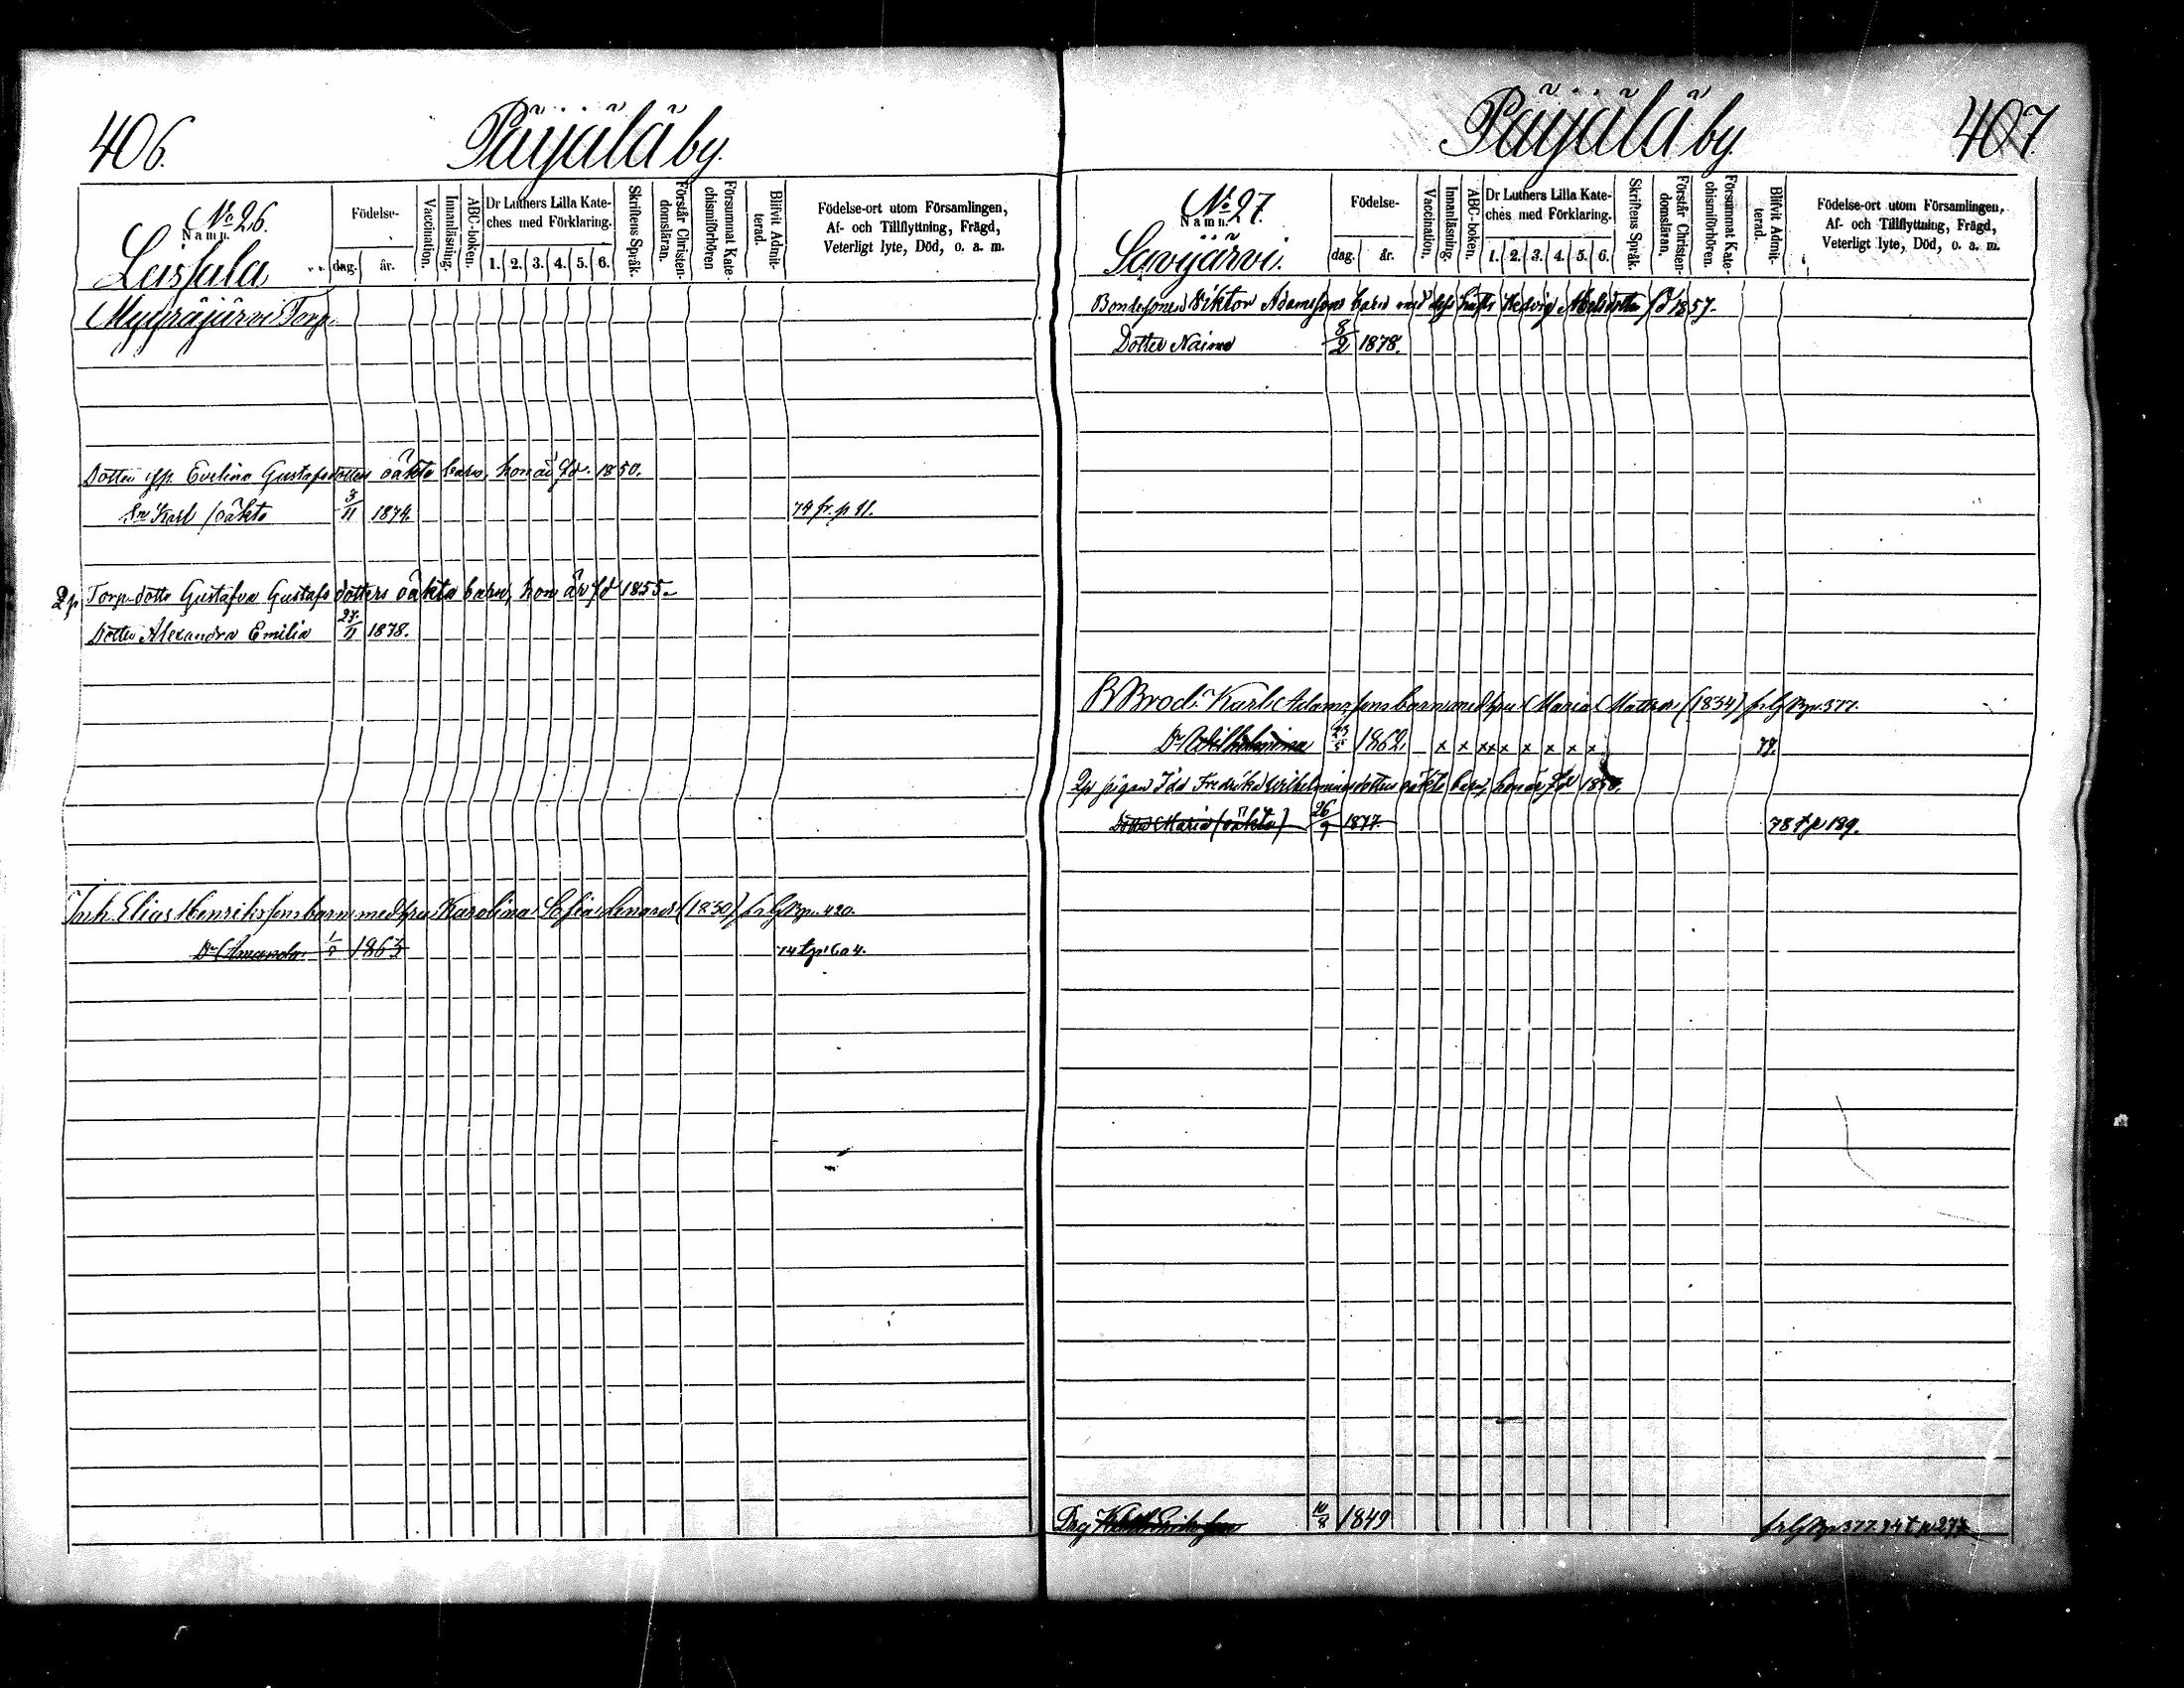 406.
Päijälä by.
No 26.
Namn.
Leissula
Födelse-
dag.
år.
Vaccination.
Innanläsning.
ABC-boken.
Dr Luthers Lilla Kate-
ches med Förklaring.
1. 2. 3. 4. 5. 6.
Skriftens Språk.
Förstår Christen-
domsläran.
Försummat Kate-
chismiförhören
Blifvit Admit-
terad.
Födelse-ort utom Församlingen,
Af- och Tillflyttning, Frägd,
Veterligt lyte, Död, o. a. m.
Myyräjärvi Torp.
Dotter Evelina Gustafsdotters oäkta barn, hon är fd. 1850.
Sn Karl /oäkta 3/11 1874. 74 fr. p 11.
2p Torp. dottr Gustafva Gustafsdotters oäkta barn, hon är fd 1855.
Dotter Alexandra Emilia 27/11 1878.
Inh. Elias Henriksson barn med hru Karolina Sofia (1830) frg Bp. 420.
Dr Amanda 1863 74 tp 604.
Päijälä by.
407.
No 27.
Namn.
Savijärvi.
Födelse-
dag.
år.
Vaccination.
Innanläsning.
ABC-boken.
Dr Luthers Lilla Kate-
ches med Förklaring.
1. 2. 3. 4. 5. 6.
Skriftens Språk.
Förstår Christen-
domsläran.
Försummat Kate-
chismiförhören.
Blifvit Admit-
terad.
Födelse-ort utom Församlingen,
Af- och Tillflyttning, Frägd,
Veterligt lyte, Död, o. a. m.
Bondesonen Viktor Adamssons barn med dess hustr Hedvig fd 1857.
Dotter Naima 8/2 1878.
B Brod. Karl Adamsson barn med hru Maria Mattsdr (1834) frg Bp. 377.
Dr Wilhelmina 1862 x x xx x x x x x 77.
2p pigan Ida Fredrika Wilhelminasdotters oäkta barn, hon är fd
Dotter Maria (oäkta) 26/9 1877. 78 t p 189.
Drg 10/8 1849 frg Bp 377. 74 t p 277